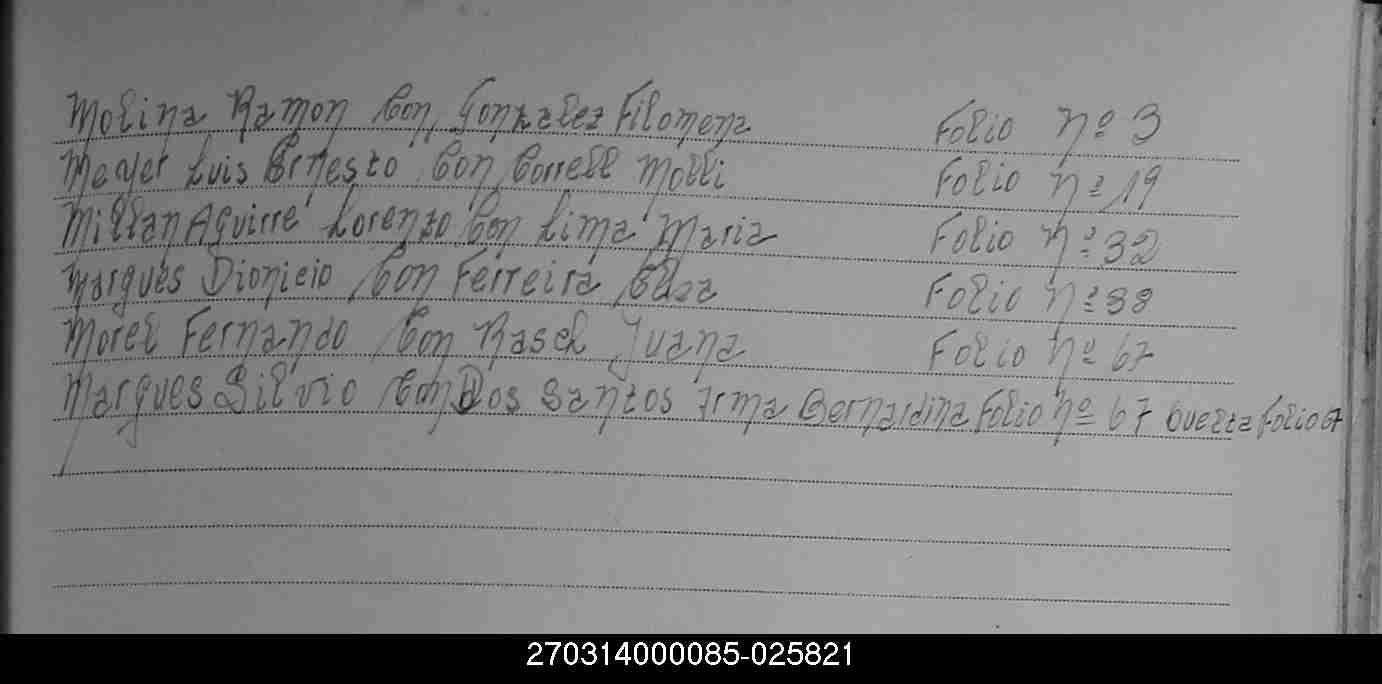 Molina Ramon Con Gonzalez Filomena Folio nº 3
Meyer Luis Ernesto Con Correll Molli Folio nº 19
Millan Aguirre Lorenzo Con Lima Maria Folio nº 32
Margues Dionicio Con Ferreira Folio nº 38
Morel Fernando Con Rasch Juana Folio nº 67
Margues Silvio Con Dos Santos Irma Bernardina Folio nº 67 buelta folio 67
270314000085-025821